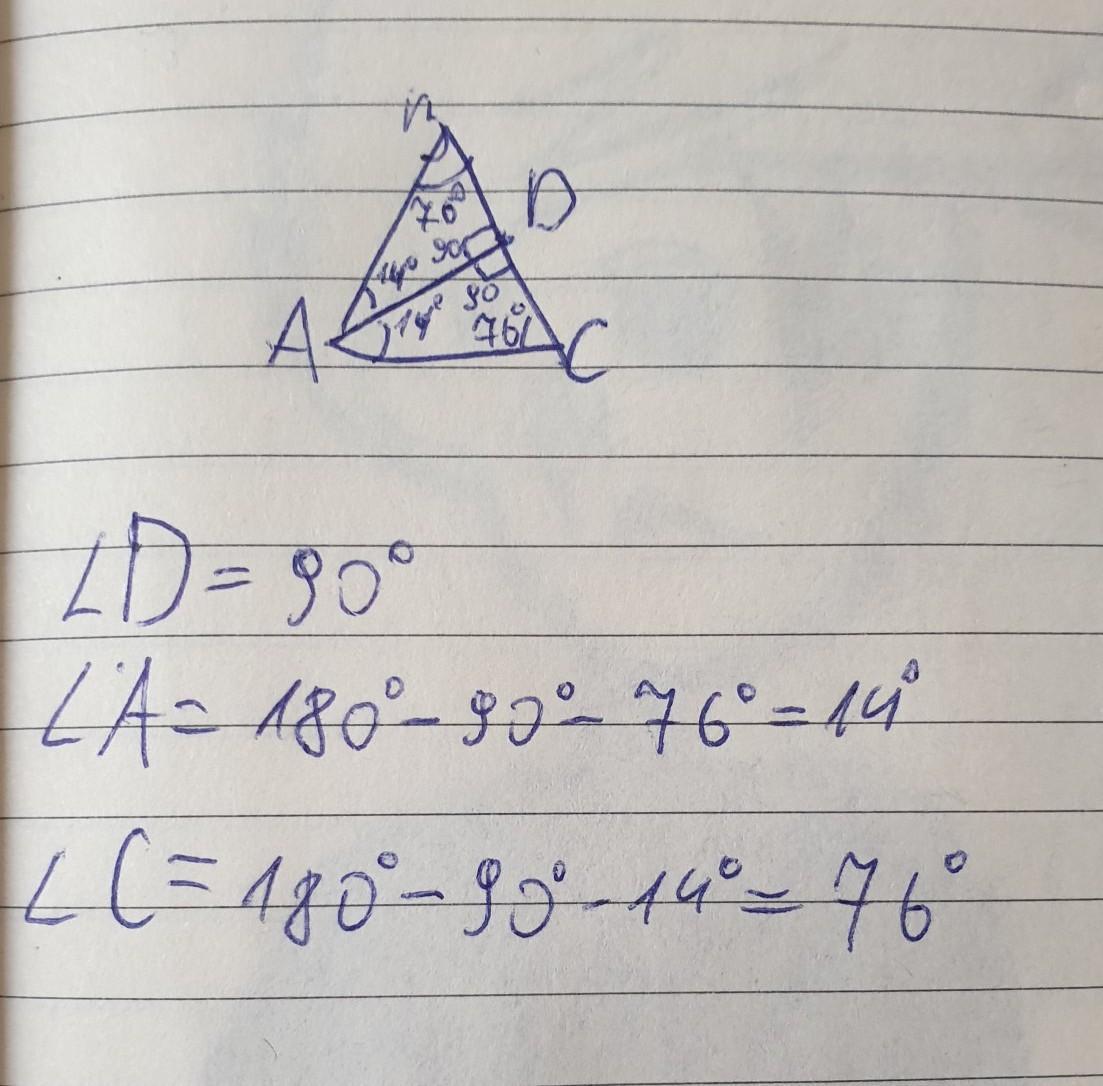 B
D
76°
90
14°
90
14°
76°
A
C
∠D = 90°
∠A = 180° - 90° - 76° = 14°
∠C = 180° - 90° - 14° = 76°